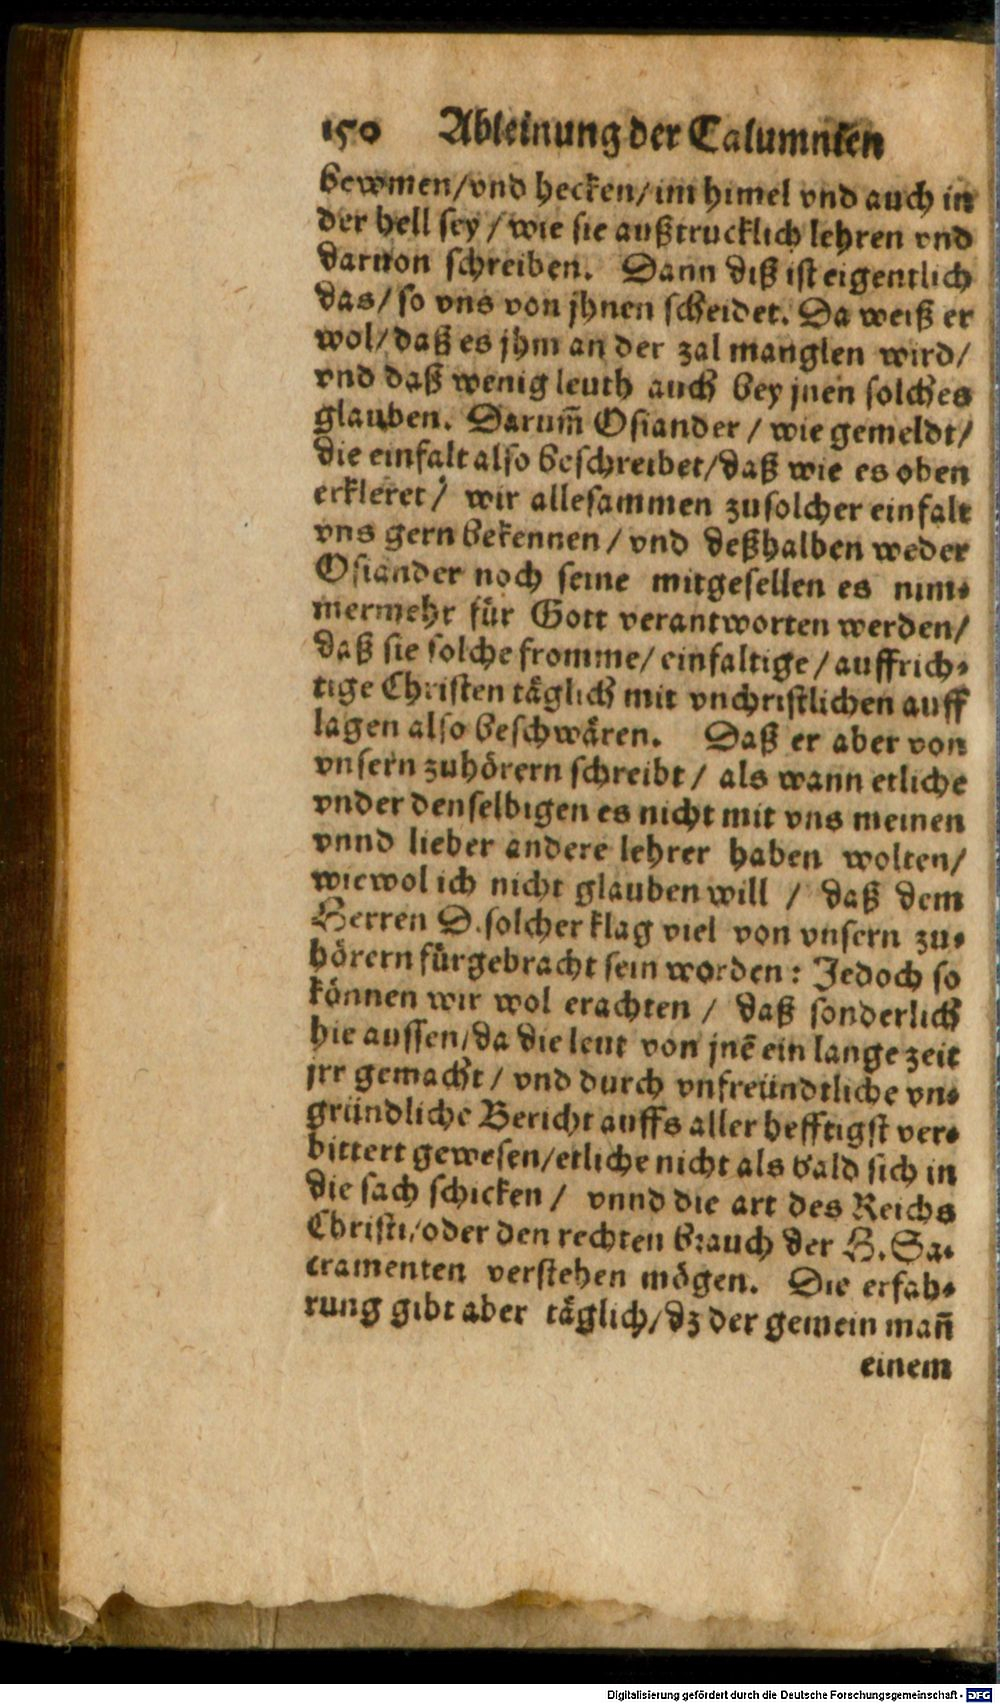 150 Ableinung der Calumnien
bewmen/vnd hecken/im himel vnd auch in
der hell sey/wie sie außtrucklich lehren vnd
daruon schreiben. Dann diß ist eigentlich
das/so vns von jhnen scheidet. Da weiß er
wol/daß es jhm an der zal manglen wird/
vnd daß wenig leuth auch bey jnen solches
glauben. Darum̃ Osiander/wie gemeldt/
die einfalt also beschreibet/daß wie es oben
erkleret/ wir allesammen zusolcher einfalt
vns gern bekennen/vnd deßhalben weder
Osiander noch seine mitgesellen es nim-
mermehr für Gott verantworten werden/
daß sie solche fromme/einfaltige/auffrich-
tige Christen täglich mit vnchristlichen auff
lagen also beschwären. Daß er aber von
vnsern zuhörern schreibt/ als wann etliche
vnder denselbigen es nicht mit vns meinen
vnnd lieber andere lehrer haben wolten/
wiewol ich nicht glauben will / daß dem
Herren D. solcher klag viel von vnsern zu-
hörern fürgebracht sein worden: Jedoch so
können wir wol erachten / daß sonderlich
hie aussen/da die leut von jnē ein lange zeit
jrr gemacht/ vnd durch vnfreündtliche vn-
gründliche Bericht auffs aller hefftigst ver-
bittert gewesen/etliche nicht als bald sich in
die sach schicken / vnnd die art des Reichs
Christi/oder den rechten brauch der H. Sa-
cramenten verstehen mögen. Die erfah-
rung gibt aber täglich/dz der gemein mañ
einem
Digitalisierung gefördert durch die Deutsche Forschungsgemeinschaft - DFG